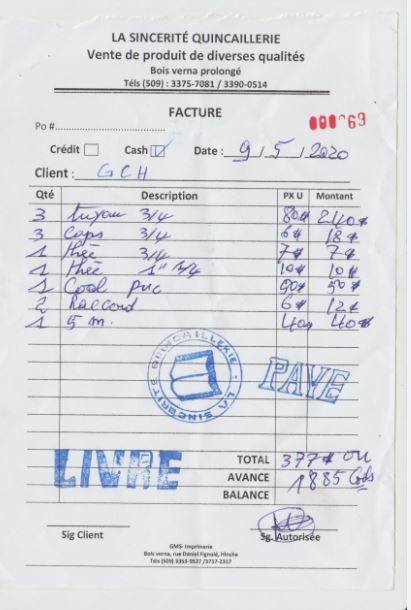 LA SINCERITÉ QUINCAILLERIE
Vente de produit de diverses qualités
Bois verna prolongé
Téls (509) : 3375-7081 / 3390-0514
FACTURE
Po #
Crédit Cash Date : 9/5/2020
Client : GCH
Qté Description PX U Montant
3 tuyau 3/4 80 240
3 Caps 3/4 6 18
1 thée 3/4 7 7
1 thée 1" 3/4 10 10
1 PVC 50
2 Raccord 6 12
1 5 m. 40 40
LA SINCERITE QUINCAILLERIE
PAYE
LIVRE
TOTAL 377 ou
AVANCE 1885
BALANCE
Sig Client Sg. Autorisée
GMS- Imprimerie
Bois verna, rue Daniel Fignolé, Hinche